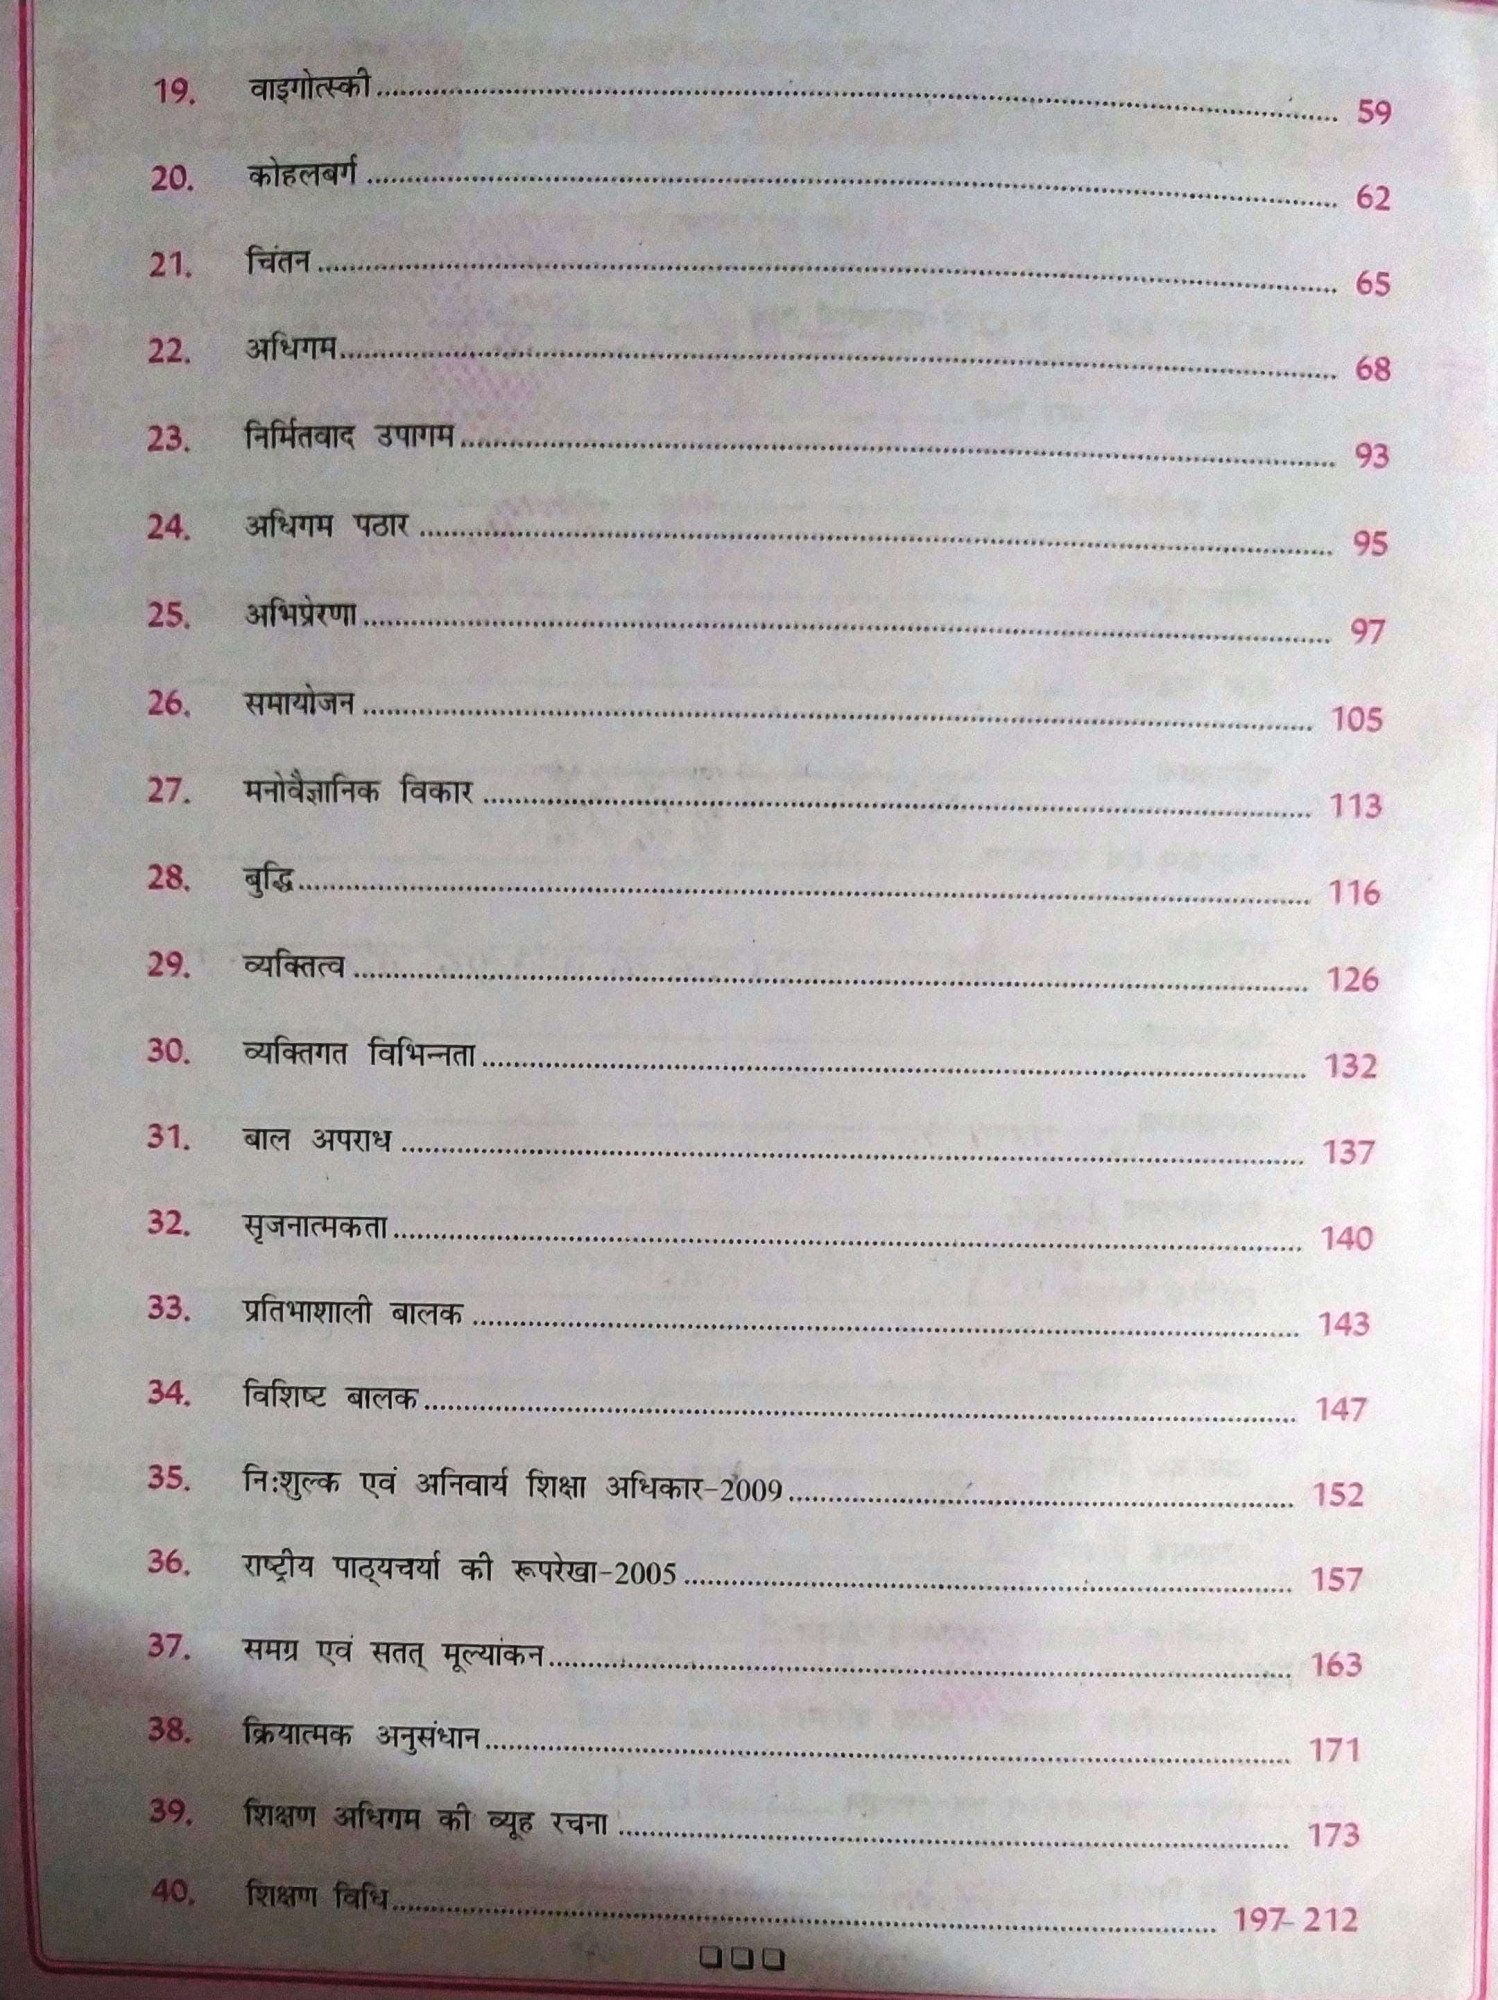 19. वाइगोत्स्की 59
20. कोहलबर्ग 62
21. चिंतन 65
22. अधिगम 68
23. निर्मितवाद उपागम 93
24. अधिगम पठार 95
25. अभिप्रेरणा 97
26. समायोजन 105
27. मनोवैज्ञानिक विकार 113
28. बुद्धि 116
29. व्यक्तित्व 126
30. व्यक्तिगत विभिन्नता 132
31. बाल अपराध 137
32. सृजनात्मकता 140
33. प्रतिभाशाली बालक 143
34. विशिष्ट बालक 147
35. नि:शुल्क एवं अनिवार्य शिक्षा अधिकार-2009 152
36. राष्ट्रीय पाठ्यचर्या की रूपरेखा-2005 157
37. समग्र एवं सतत् मूल्यांकन 163
38. क्रियात्मक अनुसंधान 171
39. शिक्षण अधिगम की व्यूह रचना 173
40. शिक्षण विधि 197-212